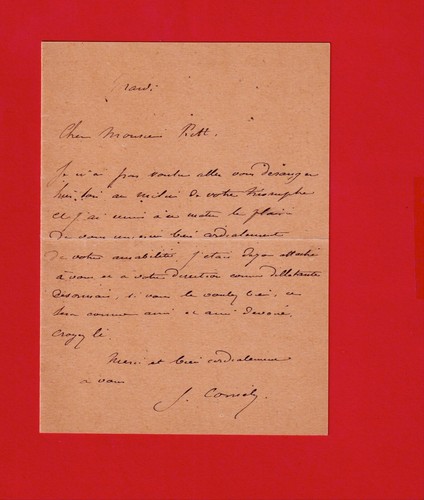 Mardi
Cher Monsieur Pitt.
Je n'ai pas voulu aller vous déranger
hier soir au milieu de votre triomphe
et j'ai remis à ce matin le plaisir
de vous remercier bien cordialement
de votre amabilité. J'étais déjà attaché
à vous et à votre direction comme dilettante
désormais, si vous le voulez bien, ce
sera comme ami et ami dévoué,
croyez le.
Merci et bien cordialement
à vous
J. Cornély